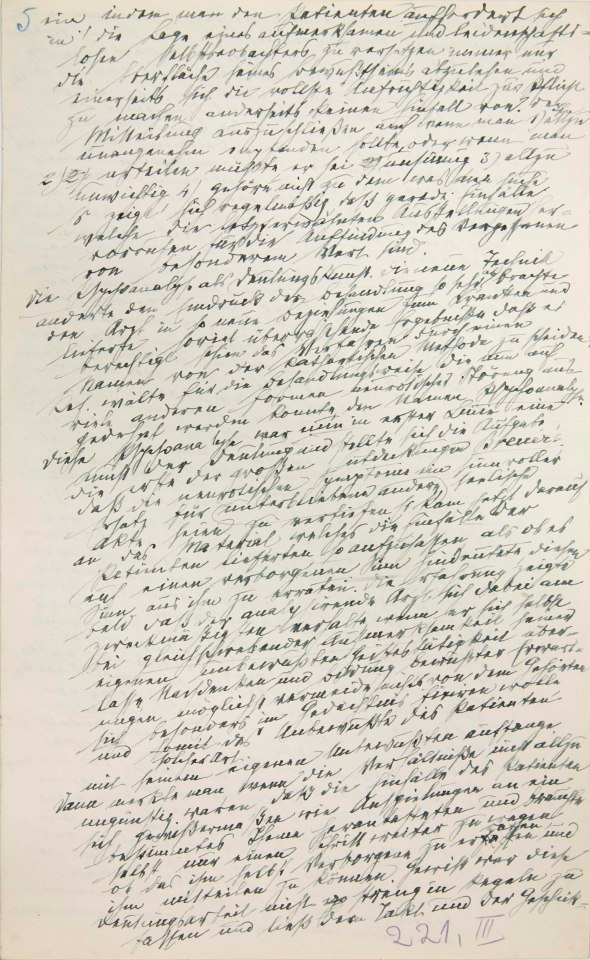 5 ein indem man den Patienten auffordert sich
in die Lage eines aufmerksamen und leidenschafts-
losen Selbstbeobachters zu versetzen immer nur
die Oberfläche seines Bewußtseins abzulesen und
einerseits sich die vollste Aufrichtigkeit zur Pflicht
zu machen anderseits keinen Einfall von der
Mitteilung auszuschließen auch wenn man 1) allzu
unangenehm empfinden sollte oder wenn man
2) urteilen müßte er sei unsinnig 3) allzu
unwichtig 4) gehöre nicht zu dem was man suche
Es zeigt sich regelmäßig daß gerade Einfälle
welche die letzterwähnten Ausstellungen her-
vorrufen für die Auffindung des Vergessenen
von besonderem Wert sind.
Die Psychoanalyse als Deutungskunst. Die neue Technik
änderte den Eindruck der Behandlung so sehr brachte
den Arzt in so neue Beziehungen zum Kranken und
lieferte soviel überraschende Ergebnisse daß es
berechtigt schien das Verfahren durch einen
Namen von der kathartischen Methode zu scheiden.
Ref. wälte für die Behandlungsweise die nun auf
viele anderen Formen neurotischer Störung aus-
gedehnt werden konnte den Namen Psychoanalyse.
Diese Psychoanalyse war nun in erster Linie eine
Kunst der Deutung und stellte sich die Aufgabe
die erste der großen Entdeckungen Breuer's
daß die neurotischen Symptome ein sinnvoller
Ersatz für unterbliebene andere seelische
Akte seien zu vertiefen. Es kam jetzt darauf
an das Material welches die Einfälle der
Patienten lieferten so aufzufassen als ob es
auf einen verborgenen Sinn hindeutete diesen
Sinn aus ihm zu erraten. Die Erfahrung zeigte
bald daß der analysirende Arzt sich dabei am
zweckmäßigsten verhalte wenn er sich selbst
bei gleichschwebender Aufmerksamkeit seiner
eigenen unbewußten Geistestätigkeit über-
lasse Nachdenken und Bildung bewußter Erwart-
ungen möglichst vermeide nichts von dem Gehörten
sich besonders im Gedächtnis fixieren wolle
und solcher Art das Unbewußte des Patienten
mit seinem eigenen Unbewußten auffange
Dann merkte man wenn die Verhältniße nicht allzu
ungünstig waren daß die Einfälle des Patienten
sich gewissermaßen wie Anspielungen an ein
bestimmtes Thema herantasteten und brauchte
selbst nur einen Schritt weiter zu wagen
um das ihm selbst Verborgene zu erraten und
ihm mitteilen zu können. Gewiß war diese
Deutungsarbeit nicht so streng in Regeln zu
fassen und ließ dem Takt und der Geschick-
221, III